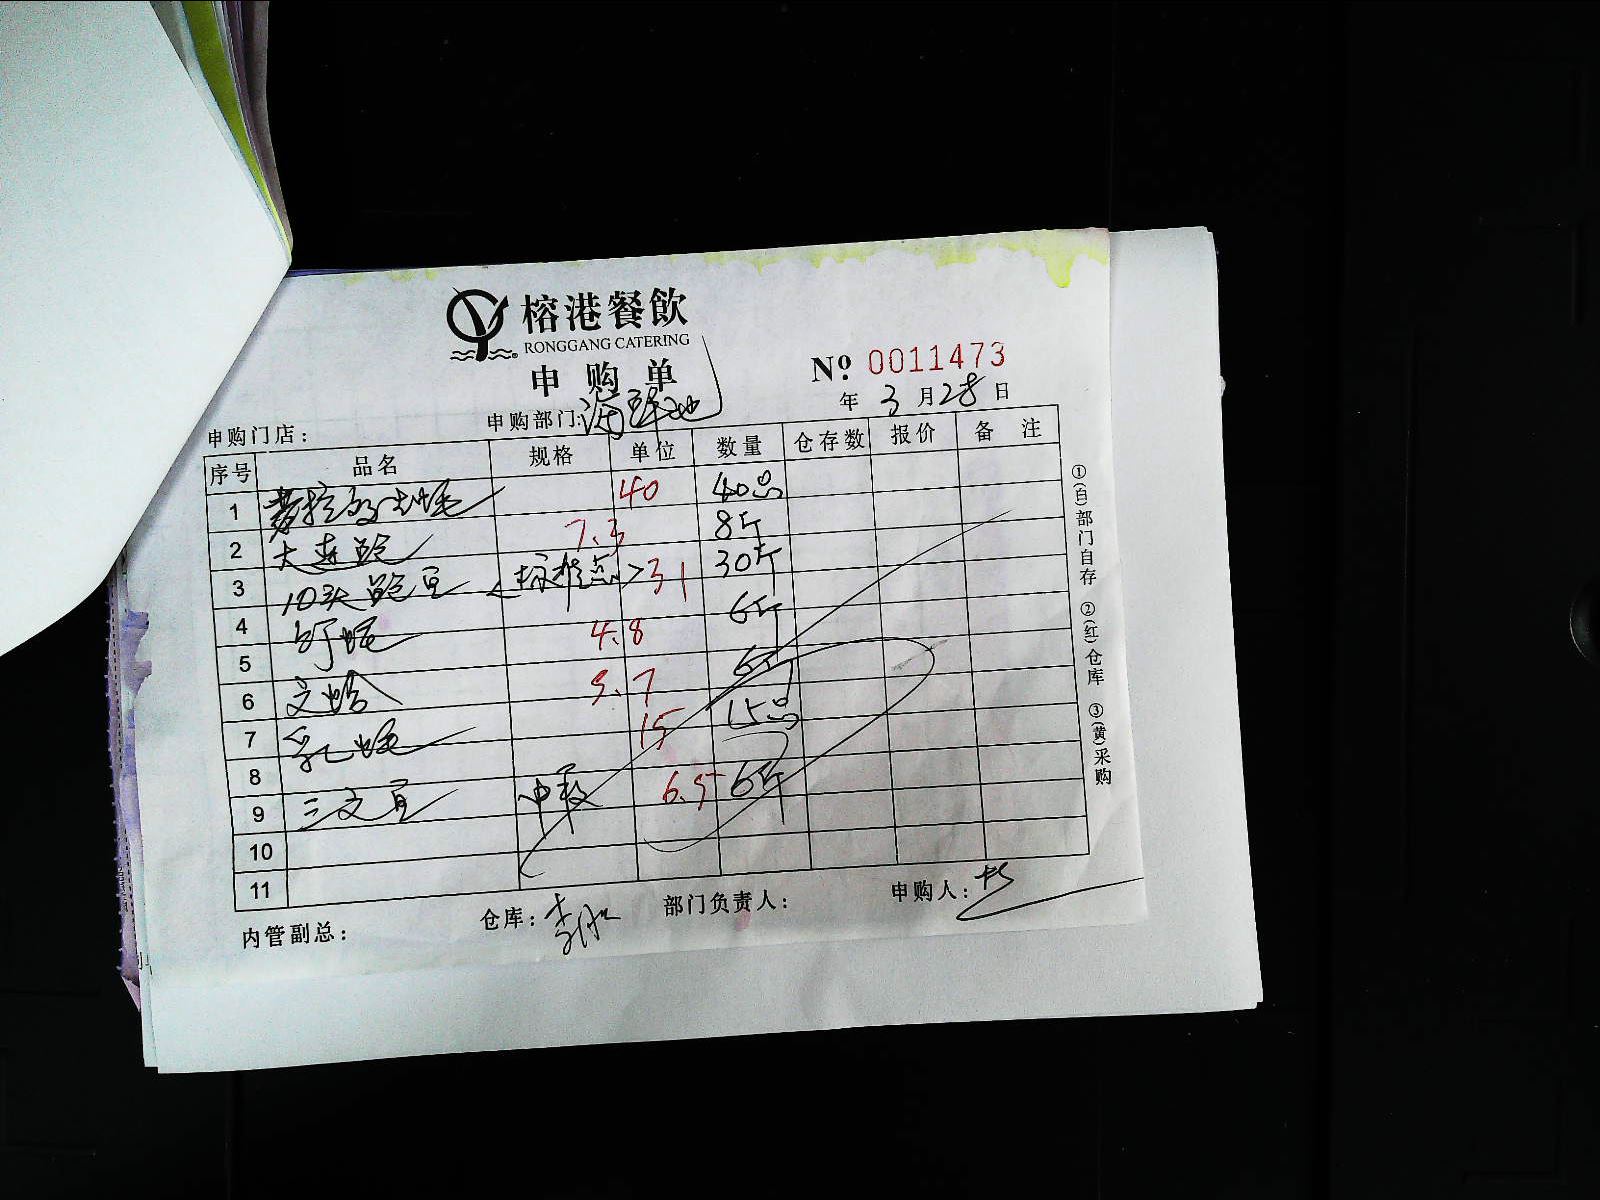 榕港餐飲
RONGGANG CATERING
申购单
№ 0011473
年 3 月 28 日
申购门店： 申购部门：海鲜池
序号 品名 规格 单位 数量 仓存数 报价 备注
1 40 40只
2 大连鲍 7.3 8斤
3 10头鲍鱼 <标准点> 31 30斤
4 6斤
5 4.8
6 文蛤 5.7 5斤
7 15 15只
8
9 三文鱼 中段 6.5 6斤
10
11
内管副总： 仓库：李 部门负责人： 申购人：
①(白)部门自存 ②(红)仓库 ③(黄)采购